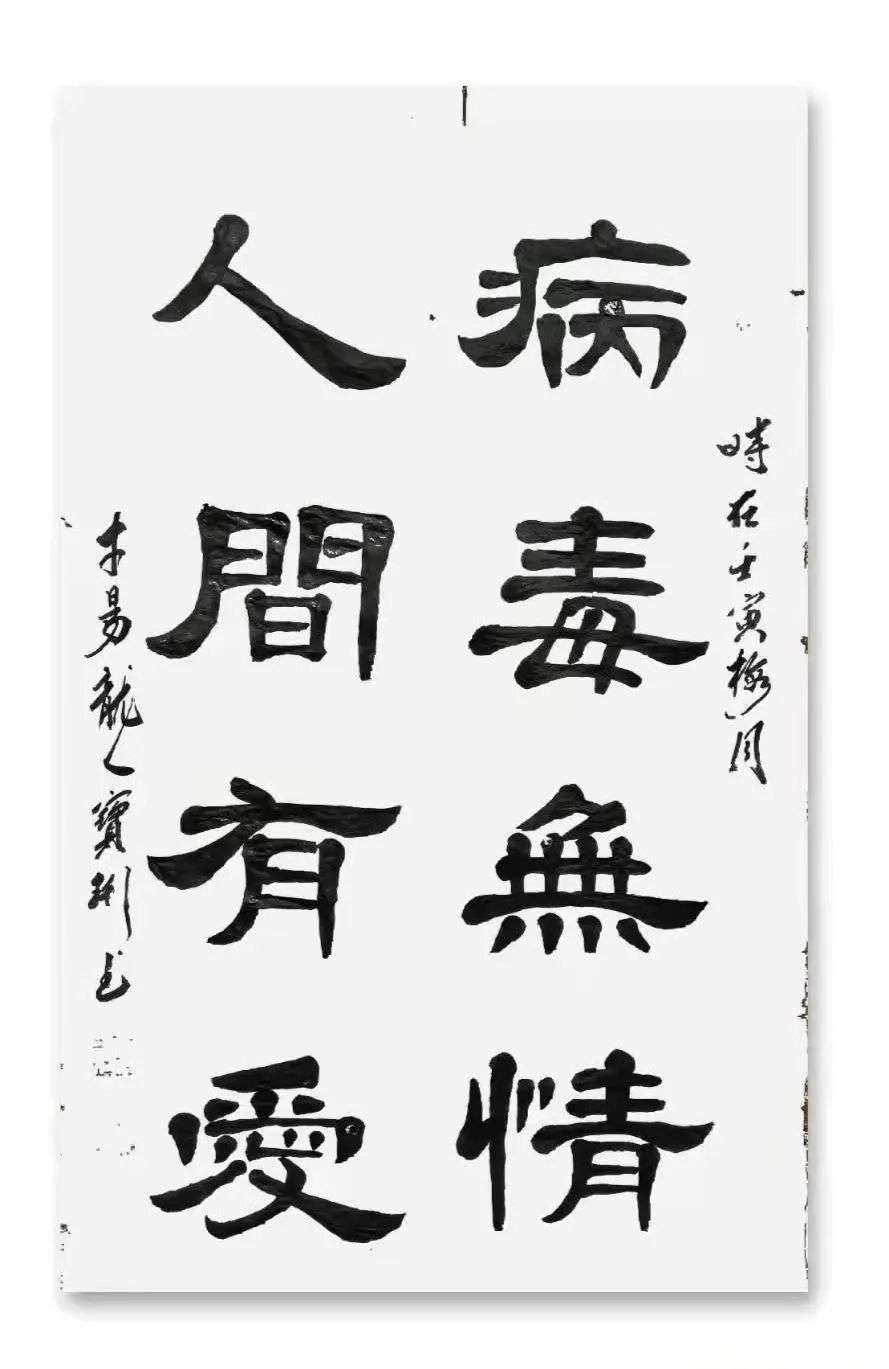 時在壬寅梅月
病毒無情
人間有愛
易龍人寶彬書